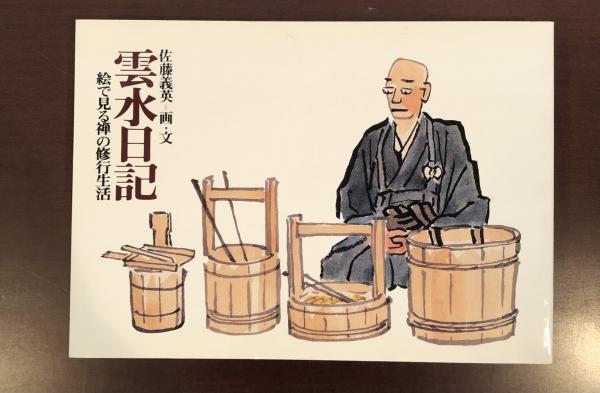 佐藤義英－画・文
雲水日記
絵で見る禅の修行生活